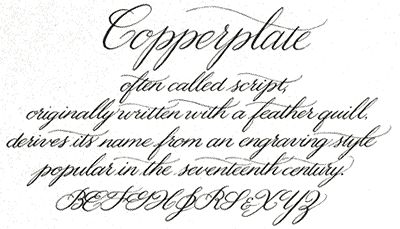 Copperplate
often called script,
originally written with a feather quill.
derives its name from an engraving style
popular in the seventeenth century.
BCFGHJRS&XYZ